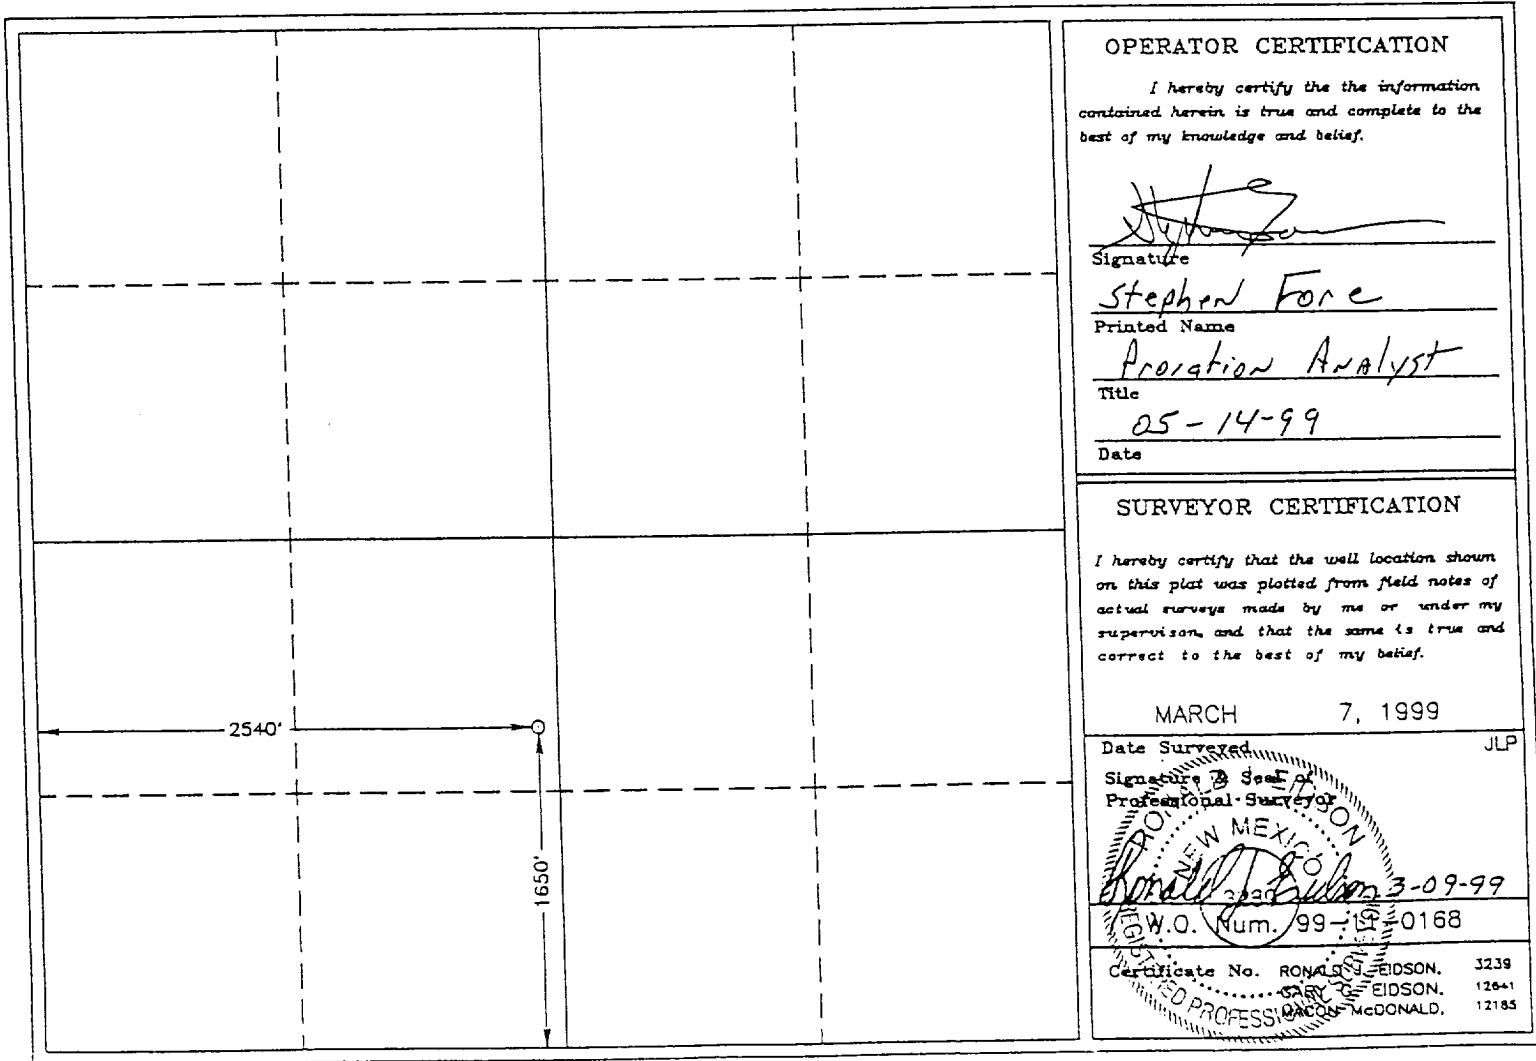 2540'
1650'
OPERATOR CERTIFICATION
I hereby certify the the information
contained herein is true and complete to the
best of my knowledge and belief.
Signature
Stephen Fore
Printed Name
Proration Analyst
Title
05-14-99
Date
SURVEYOR CERTIFICATION
I hereby certify that the well location shown
on this plat was plotted from field notes of
actual surveys made by me or under my
supervison, and that the same is true and
correct to the best of my belief.
MARCH 7, 1999
Date Surveyed JLP
Signature & Seal of
Professional Surveyor
RONALD J. EIDSON
NEW MEXICO
3239
REGISTERED PROFESSIONAL SURVEYOR
Ronald J. Eidson 3-09-99
W.O. Num. 99-11-0168
Certificate No. RONALD J. EIDSON, 3239
GARY G. EIDSON, 12641
MACON McDONALD, 12185